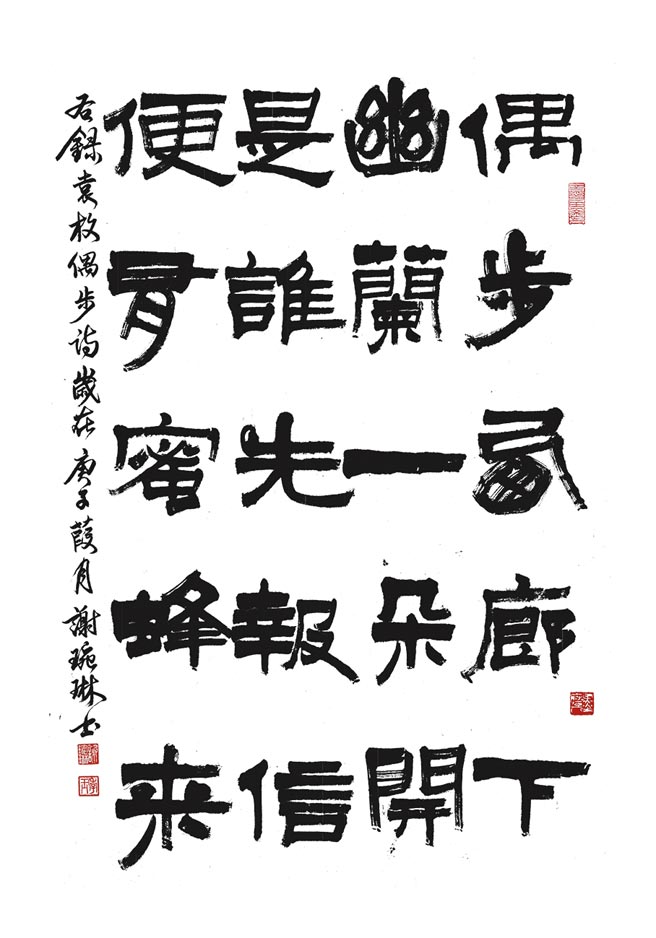 偶步西廊下
幽蘭一朵開
是誰先報信
便有蜜蜂来
右録袁枚偶步诗歲在庚子葭月謝琬琳书